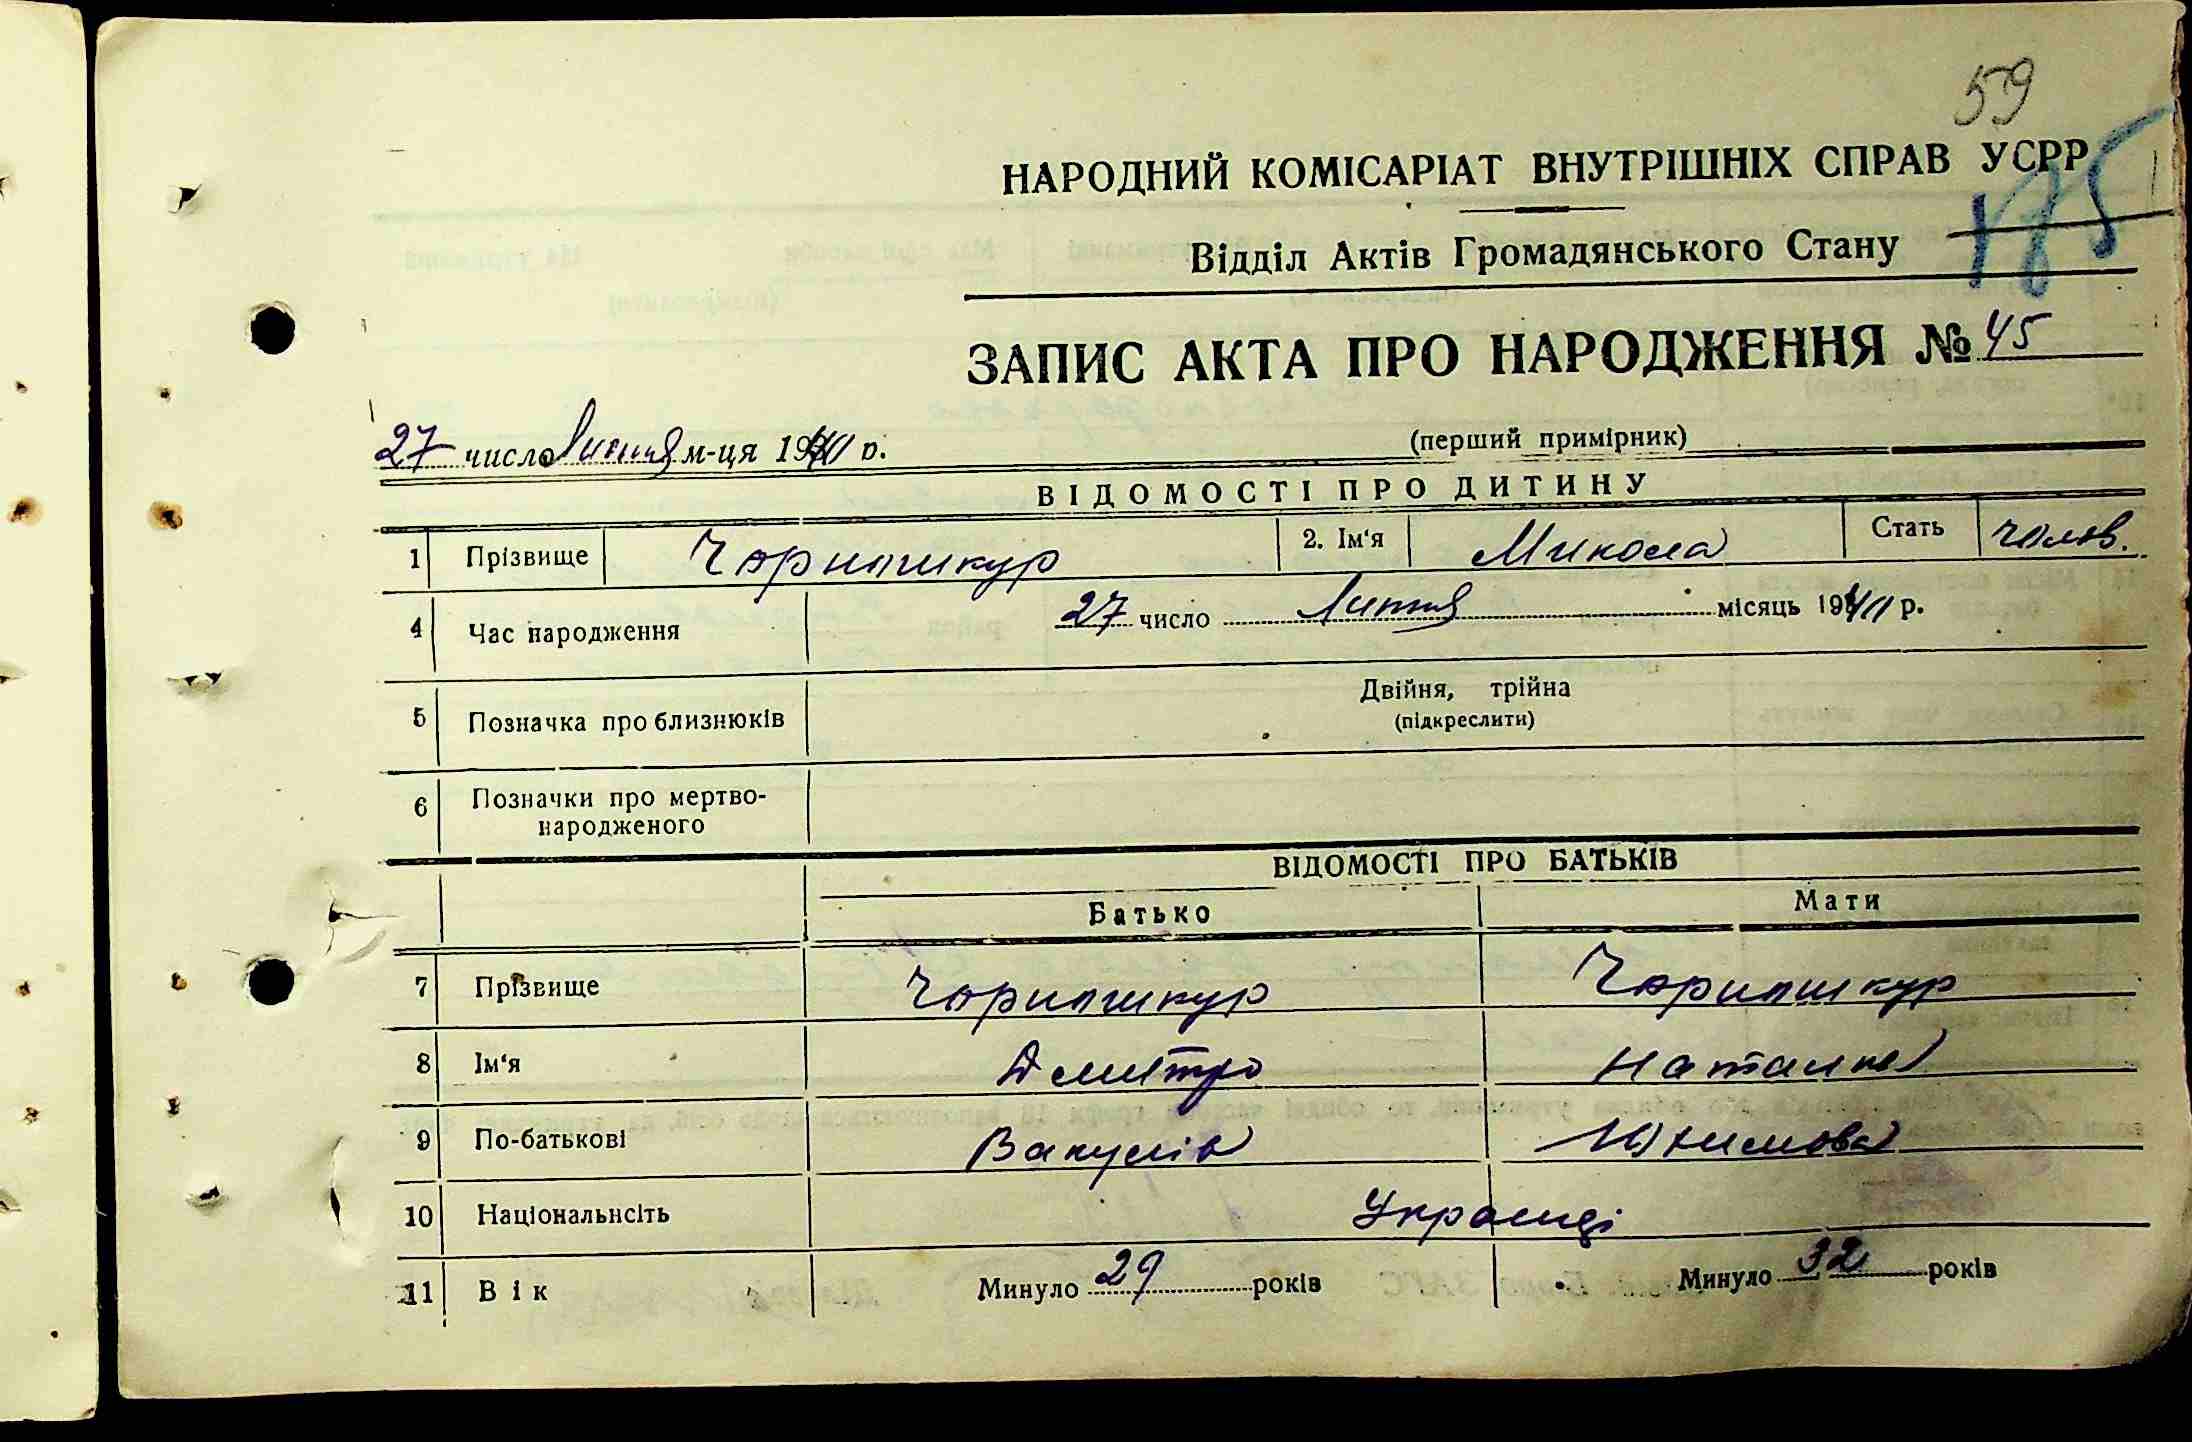 59
185
НАРОДНИЙ КОМІСАРІАТ ВНУТРІШНІХ СПРАВ УСРР
Відділ Актів Громадянського Стану
ЗАПИС АКТА ПРО НАРОДЖЕННЯ № 45
27 число Липня м-ця 1941 р. (перший примірник)
ВІДОМОСТІ ПРО ДИТИНУ
1 Прізвище 2. Ім'я Микола Стать чолов.
4 Час народження 27 число Липня місяць 1941 р.
5 Позначка про близнюків Двійня, трійна
(підкреслити)
6 Позначки про мертво-
народженого
ВІДОМОСТІ ПРО БАТЬКІВ
Батько Мати
7 Прізвище
8 Ім'я Дмитро Наталка
9 По-батькові Вакулів Юхимова
10 Національнсіть Українці
11 Вік Минуло 29 років Минуло 32 років